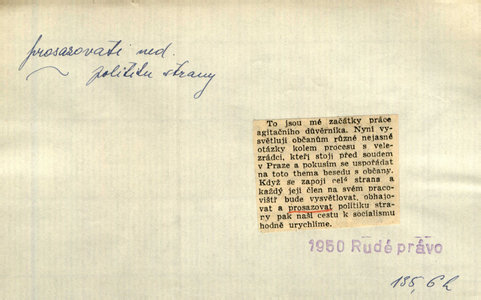 prosazovati ned.
politiku strany
To jsou mé začátky práce
agitačního důvěrníka. Nyní vy-
světluji občanům různé nejasné
otázky kolem procesu s vele-
zrádci, kteří stojí před soudem
v Praze a pokusím se uspořádat
na toto thema besedu s občany.
Když se zapojí celá strana a
každý její člen na svém praco-
višti bude vysvětlovat, obhajo-
vat a prosazovat politiku stra-
ny pak naši cestu k socialismu
hodně urychlíme.
1950 Rudé právo
185, 6 h